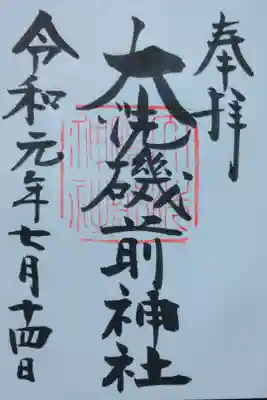 奉拝
大洗磯前神社
令和元年七月十四日